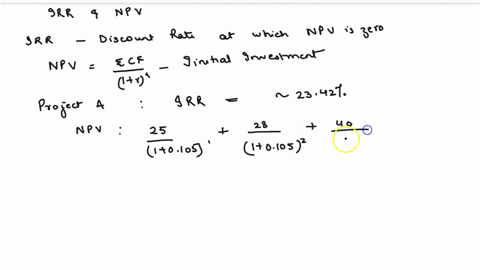 IRR & NPV
IRR - Discount Rate at which NPV is zero
NPV = ΣCF/(1+r)^1 - Initial Investment
Project A : IRR = ~ 23.42%.
NPV : 25/(1+0.105)^1 + 28/(1+0.105)^2 + 40/